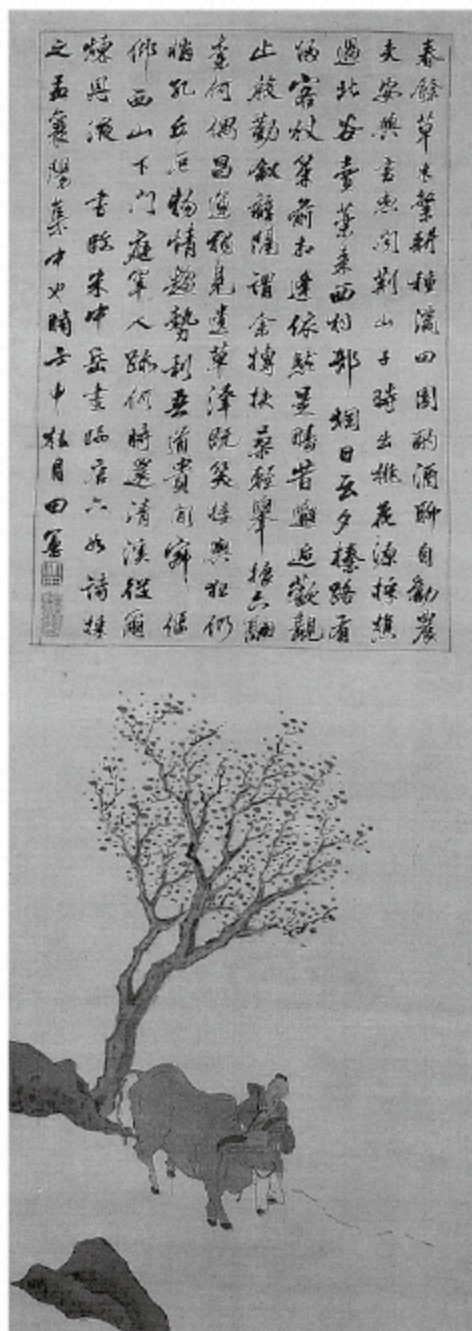 春餘草木繁耕種滿田園酌酒聊自勸農
夫安與言忽聞荊山子時出桃花源採樵
過北谷賣藥來西村邨烟日云夕榛路有
歸客杖策前相逢依然是疇昔邂逅歡觀
止殷勤敘離隔謂余搏扶桑輕舉振六翮
奈何偶昌運獨見遺草澤既笑接輿狂仍
憐孔丘厄物情趨勢利吾道貴閒寂偃
仰西山下門庭罕人跡何時還清溪從爾
煉丹液 書做米中岳畫臨唐六如詩採
之孟襄陽集中也時壬申桂月田